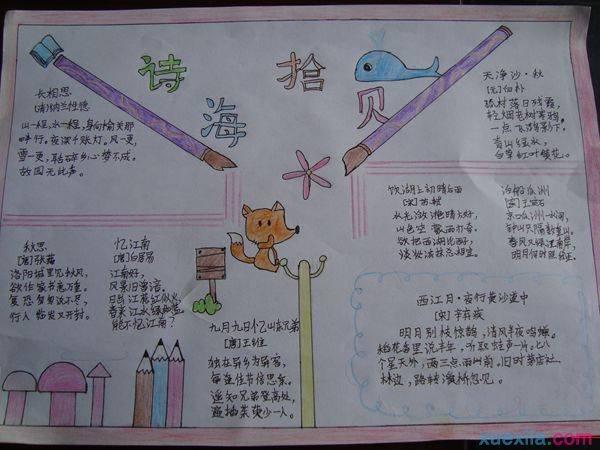 诗海拾贝
长相思
[清]纳兰性德
山一程,水一程,身向榆关那
畔行。夜深千帐灯。风一更,
雪一更,聒碎乡心梦不成。
故园无此声。
天净沙·秋
[元]白朴
孤村落日残霞,
轻烟老树寒鸦,
一点飞鸿影下。
青山绿水,
白草红叶黄花。
饮湖上初晴后雨
[宋]苏轼
水光潋滟晴方好,
山色空蒙雨亦奇。
欲把西湖比西子,
淡妆浓抹总相宜。
泊船瓜洲
[宋]王安石
京口瓜洲一水间,
钟山只隔数重山。
春风又绿江南岸,
明月何时照我还。
秋思
[唐]张籍
洛阳城里见秋风,
欲作家书意万重。
复恐匆匆说不尽,
行人临发又开封。
忆江南
[唐]白居易
江南好,
风景旧曾谙。
日出江花红似火,
春来江水绿如蓝。
能不忆江南?
九月九日忆山东兄弟
[唐]王维
独在异乡为异客,
每逢佳节倍思亲。
遥知兄弟登高处,
遍插茱萸少一人。
西江月·夜行黄沙道中
[宋]辛弃疾
明月别枝惊鹊,清风半夜鸣蝉。
稻花香里说丰年,听取蛙声一片。七八
个星天外,两三点雨山前。旧时茅店社
林边,路转溪桥忽见。
xuexila.com